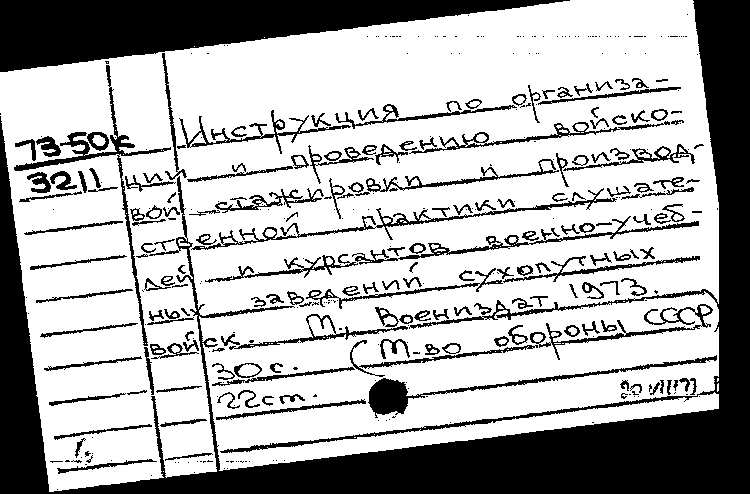 73-50к
3211
Инструкция по организа-
ции и проведению войско-
вой стажировки и производ-
ственной практики слушате-
лей и курсантов военно-учеб-
ных заведений сухопутных
войск. М., Воениздат, 1973.
30 с. (М-во обороны СССР)
22 см.